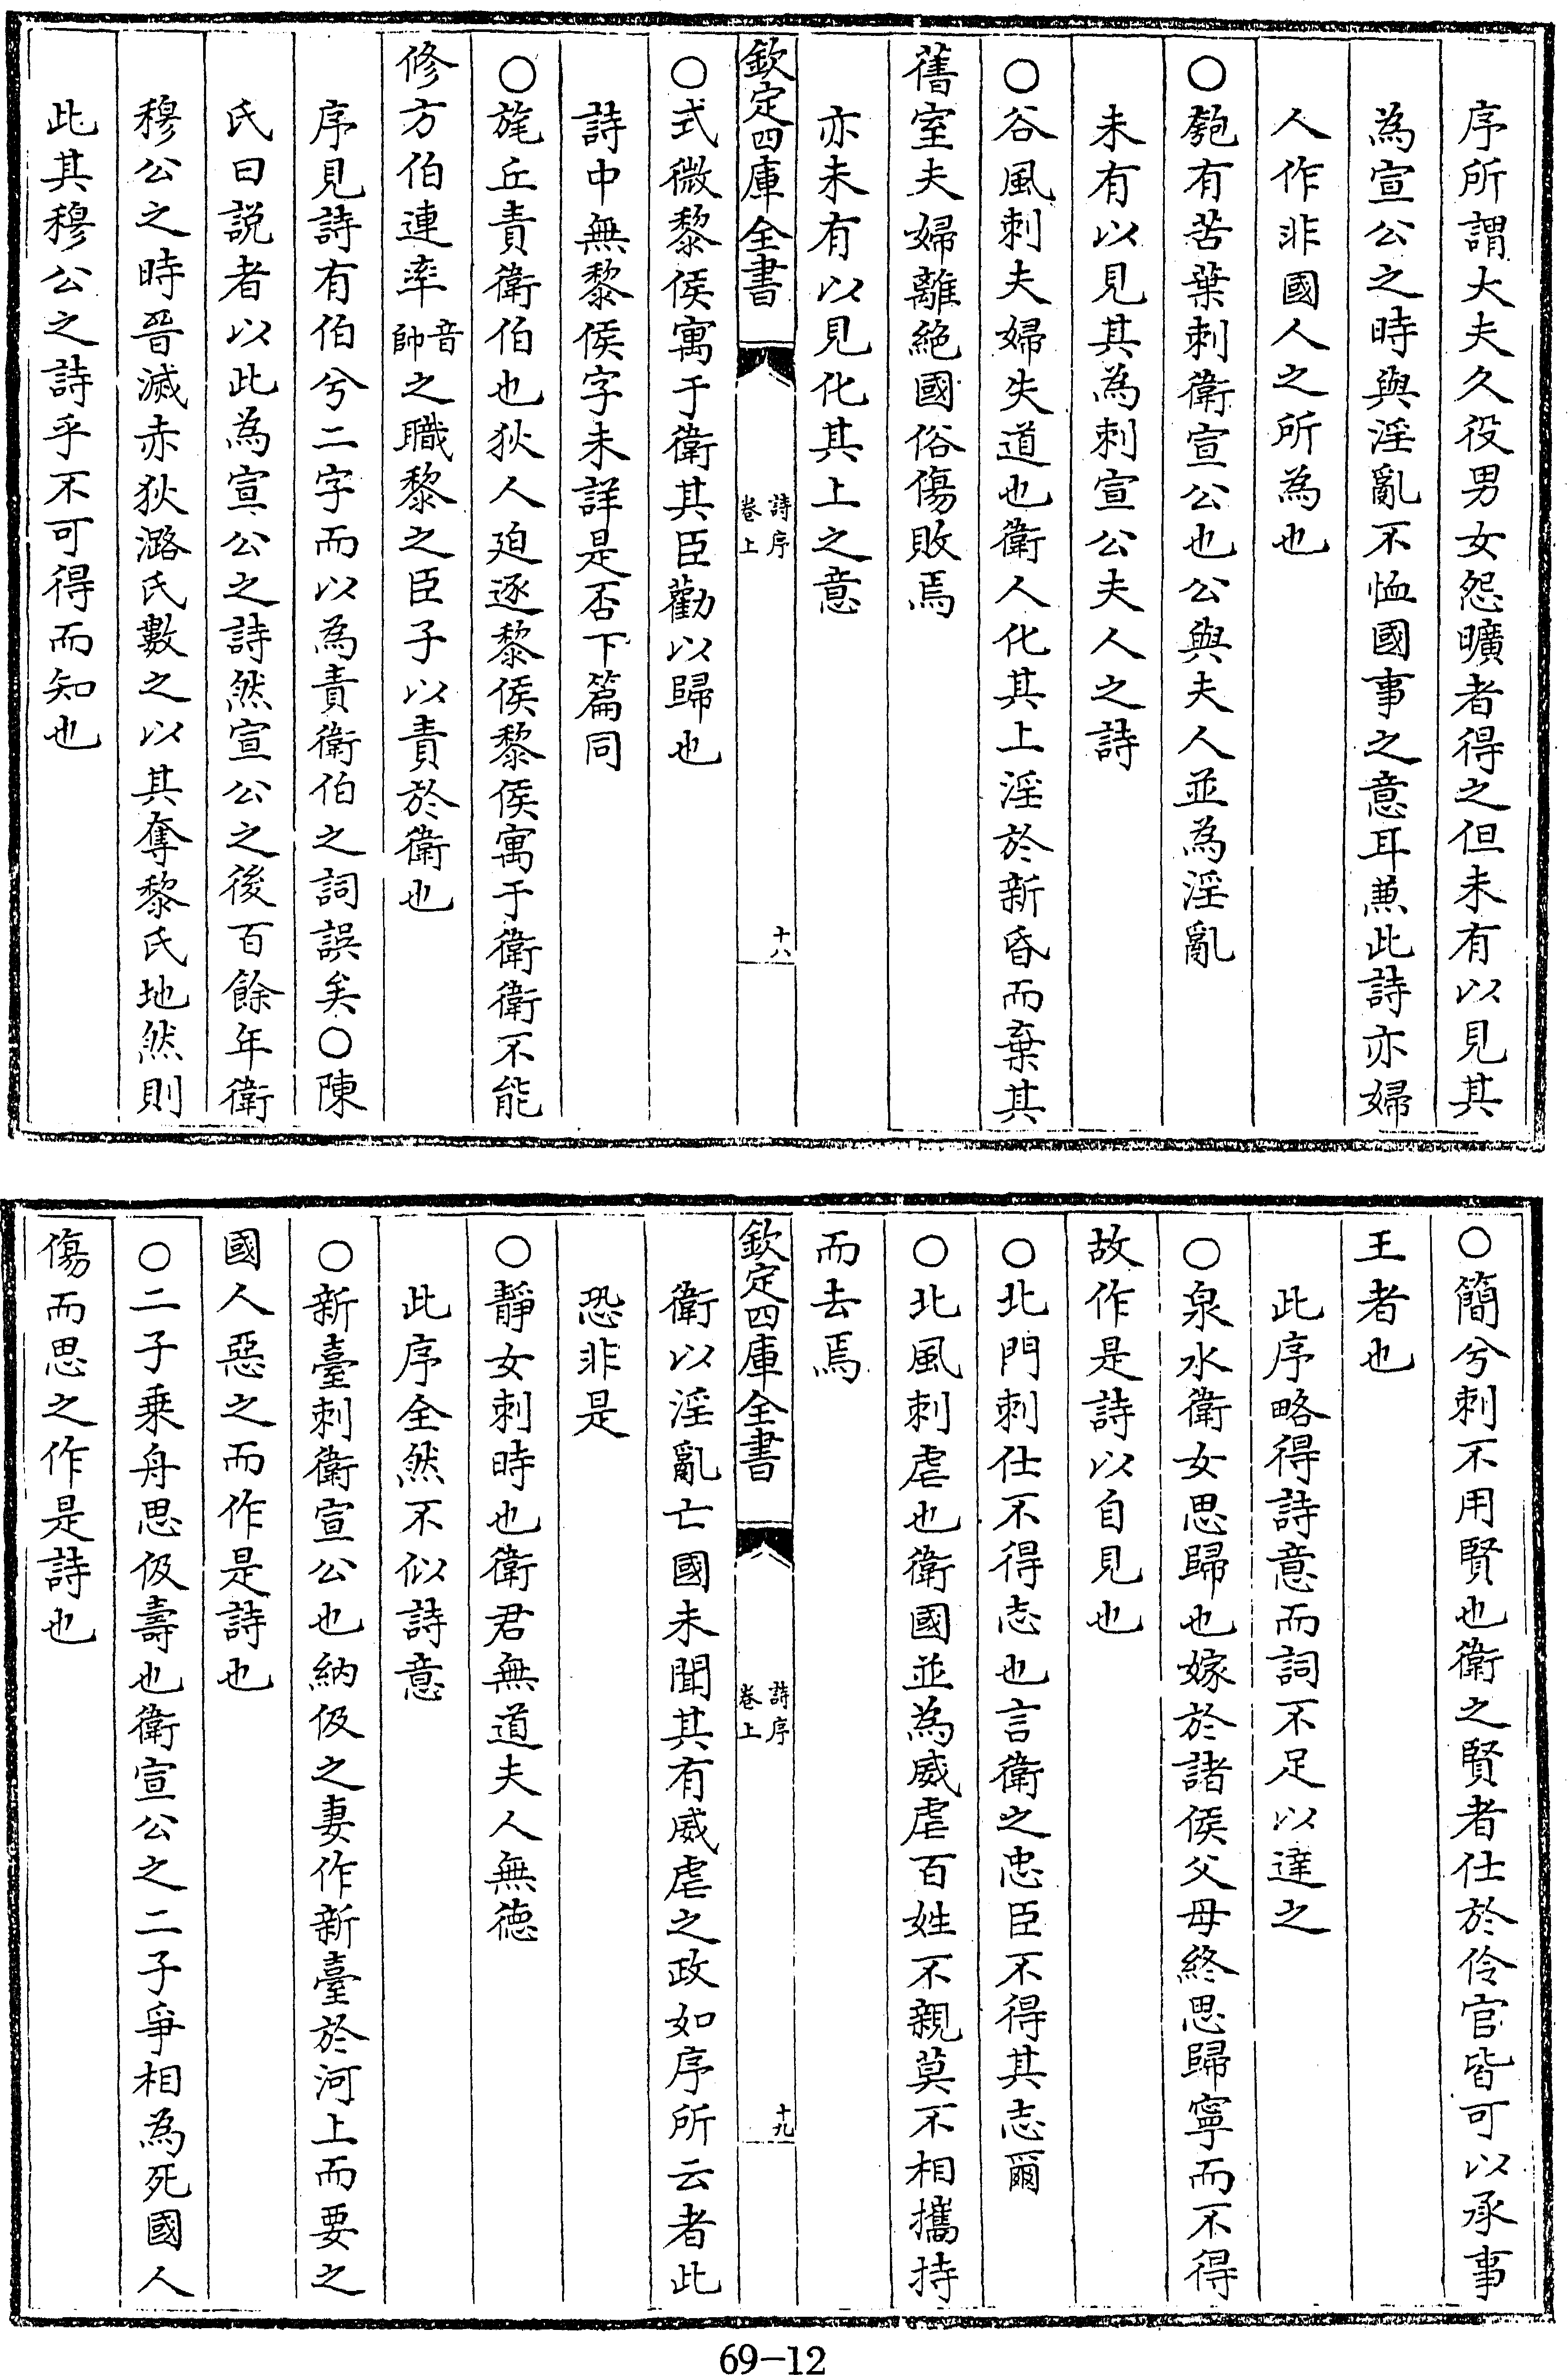 序所謂大夫久役男女怨曠者得之但未有以見其
為宣公之時與淫亂不恤國事之意耳兼此詩亦婦
人作非國人之所為也
○匏有苦葉刺衛宣公也公與夫人並為淫亂
未有以見其為刺宣公夫人之詩
○谷風刺夫婦失道也衛人化其上淫於新昏而棄其
舊室夫婦離絶國俗傷敗焉
亦未有以見化其上之意
欽定四庫全書
詩序
卷上
十八
○式微黎侯寓于衛其臣勸以歸也
詩中無黎侯字未詳是否下篇同
○旄丘責衛伯也狄人廹逐黎侯黎侯寓于衛衛不能
修方伯連率音帥之職黎之臣子以責於衛也
序見詩有伯兮二字而以為責衛伯之詞誤矣○陳
氏曰説者以此為宣公之詩然宣公之後百餘年衛
穆公之時晉滅赤狄潞氏數之以其奪黎氏地然則
此其穆公之詩乎不可得而知也
○簡兮刺不用賢也衛之賢者仕於伶官皆可以承事
王者也
此序略得詩意而詞不足以達之
○泉水衛女思歸也嫁於諸侯父母終思歸寧而不得
故作是詩以自見也
○北門刺仕不得志也言衛之忠臣不得其志爾
○北風刺虐也衛國並為威虐百姓不親莫不相攜持
而去焉
欽定四庫全書
詩序
卷上
十九
衛以淫亂亡國未聞其有威虐之政如序所云者此
恐非是
○靜女刺時也衛君無道夫人無德
此序全然不似詩意
○新臺刺衛宣公也納伋之妻作新臺於河上而要之
國人惡之而作是詩也
○二子乗舟思伋壽也衛宣公之二子爭相為死國人
傷而思之作是詩也
69-12